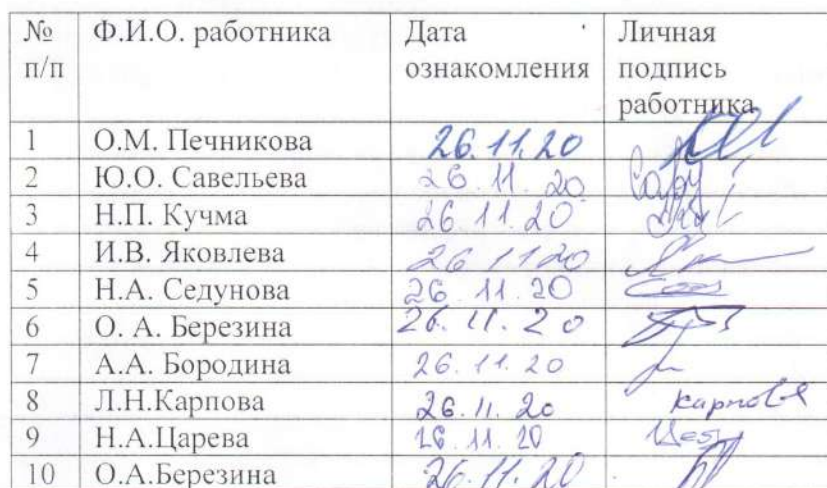 № п/п Ф.И.О. работника Дата ознакомления Личная подпись работника
1 О.М. Печникова 26.11.20
2 Ю.О. Савельева 26.11.20
3 Н.П. Кучма 26.11.20
4 И.В. Яковлева 26 11 20
5 Н.А. Седунова 26.11.20
6 О. А. Березина 26.11.20
7 А.А. Бородина 26.11.20
8 Л.Н.Карпова 26.11.20 Карпова
9 Н.А.Царева 26.11.20
10 О.А.Березина 26.11.20